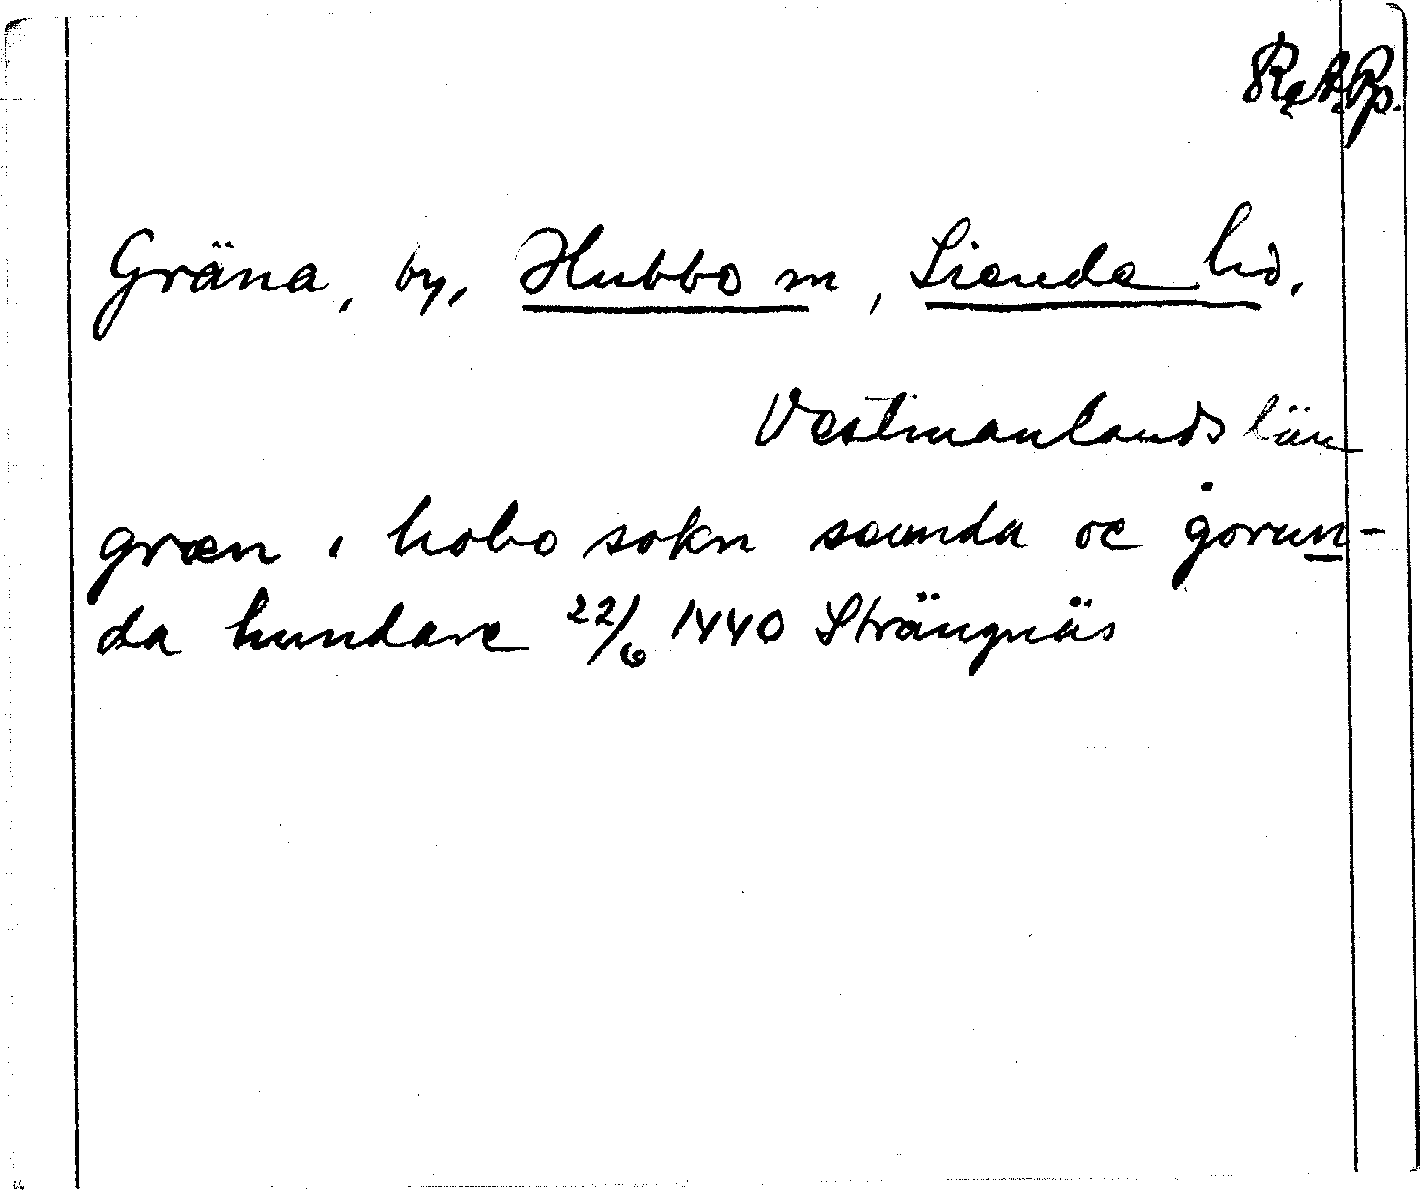 R.A.Pp.
Gräna, by, Hubbo sn, Siende hd.
Västmanlands län
græn i hobo sokn seunda oc gorun-
da hundare 22/6 1440 Strängnäs